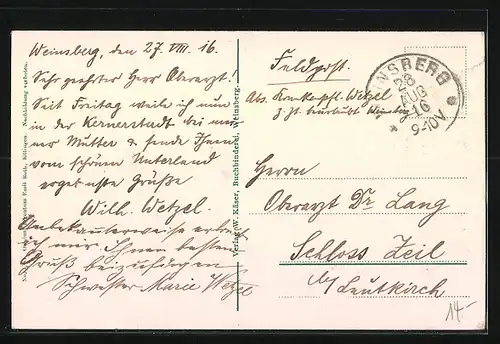 Weinsberg, den 27. VIII. 16.
Sehr geehrter Herr Oberarzt!
Seit Freitag weile ich nun
in der Kernerstadt bei mei-
ner Mutter & sende Ihnen
vom schönen Unterland
ergebenste Grüße
Wilh. Wetzel.
Unbekannterweise erlaubt
ich mir Ihnen besten
Gruß beizufügen
Schwester Marie Wetzel
Verlag W. Käser, Buchbinderei, Weinsberg.
Feldpost.
Abs. Krankenpfl. Wetzel
z. Zt. Weinsberg
NSBERG
28
AUG
16
9-10V
Herrn
Oberarzt Dr Lang
Schloss Zeil
b/ Leutkirch
14.-